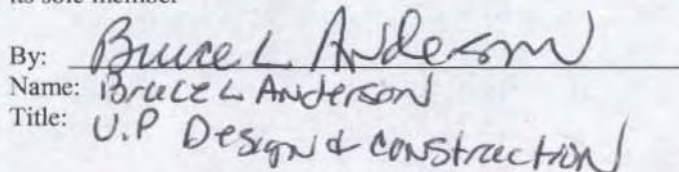 its sole member
By: Bruce L Anderson
Name: Bruce L Anderson
Title: V.P Design & Construction